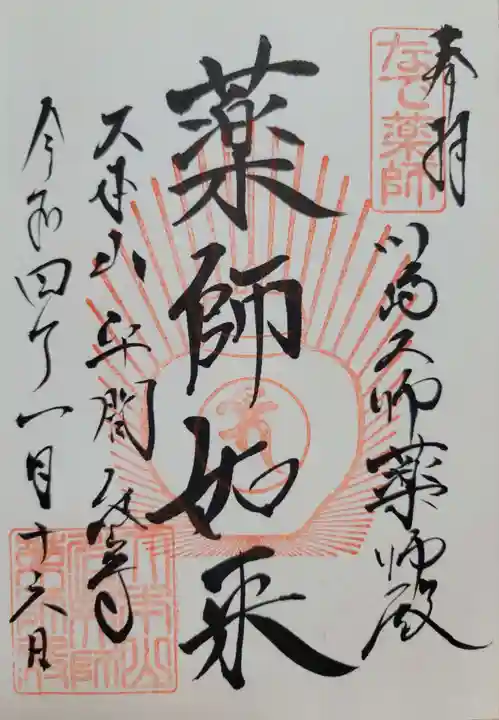 奉拝
なで薬師
川崎大師薬師殿
薬師如来
大本山 平間寺
令和四年一月十六日